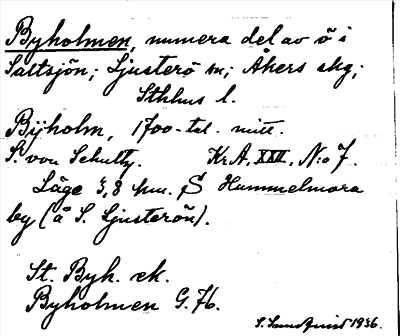 Byholmen, numera del av ö i
Saltsjön; Ljusterö sn; Åkers skg;
Sthlms l.
Byholm, 1700-tal. mitt.
S. von Schultz. Kr.A. XXII, N:o 7.
Läge 3,8 km. S Hummelmora
by (å S. Ljusterön).
St. Byh. ek.
Byholmen G. 76.
S. Sundquist 1936.